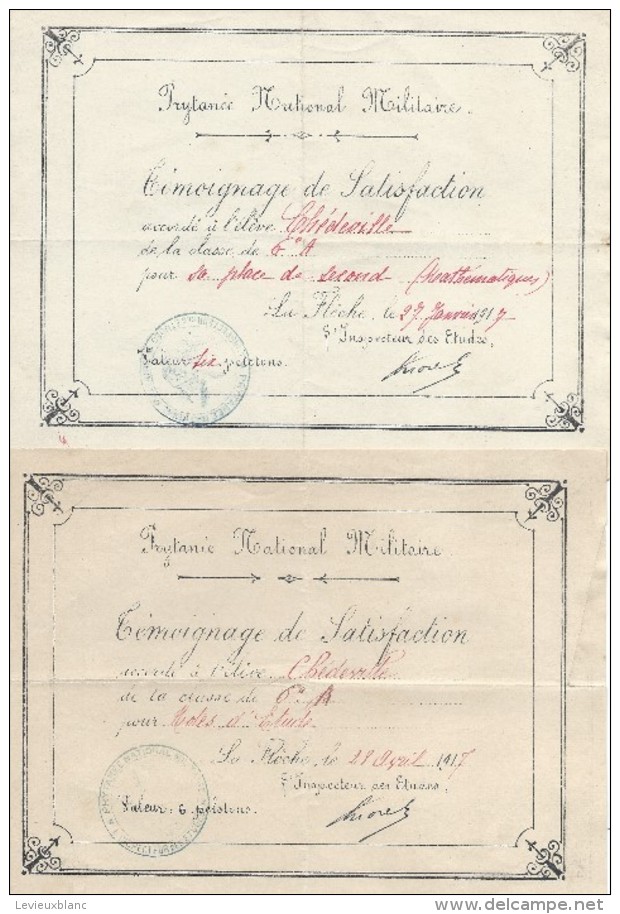 Prytanée National Militaire.
Témoignage de Satisfaction
accordé à l'élève Chédeville
de la classe de 6e A
pour sa place de second (Mathématiques)
La Flèche, le 27 Janvier 1917
L'Inspecteur des Etudes,
Valeur six pelotons.
Prytanée National Militaire
Témoignage de Satisfaction
accordé à l'élève Chédeville
de la classe de 6e A
pour Notes d'Etude
La Flèche, le 28 Avril 1917
L'Inspecteur des Etudes,
Valeur: 6 pelotons.
delcampe.net
Levieuxblanc
#satisfaction-memories